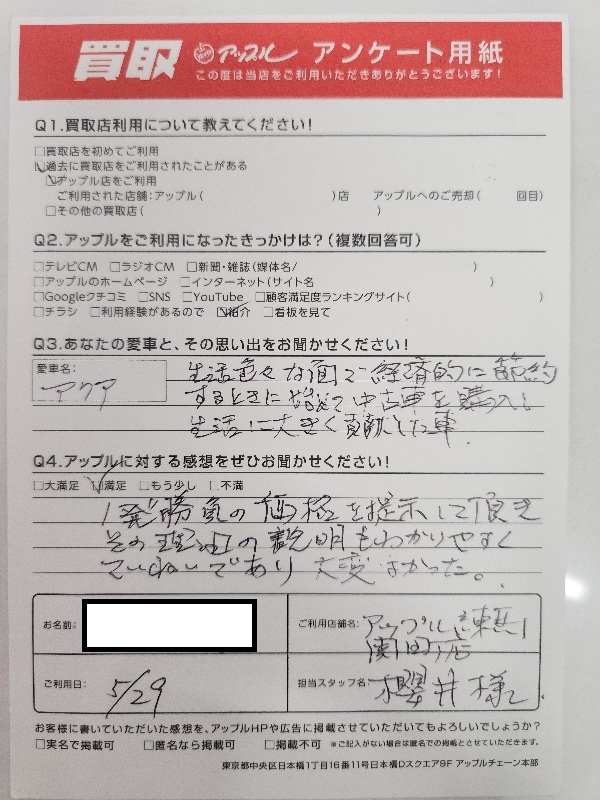 買取 アップル アンケート用紙
この度は当店をご利用いただきありがとうございます!
Q1.買取店利用について教えてください!
□買取店を初めてご利用
☑過去に買取店をご利用されたことがある
☑アップル店をご利用
ご利用された店舗:アップル( )店 アップルへのご売却( 回目)
□その他の買取店( )
Q2.アップルをご利用になったきっかけは?(複数回答可)
□テレビCM □ラジオCM □新聞・雑誌(媒体名/ )
□アップルのホームページ □インターネット(サイト名 )
□Googleクチコミ □SNS □YouTube □顧客満足度ランキングサイト( )
□チラシ □利用経験があるので ☑紹介 □看板を見て
Q3.あなたの愛車と、その思い出をお聞かせください!
愛車名:
アクア
生活色々な面で経済的に節約
するときに始めて中古車を購入し
生活に大きく貢献した車.
Q4.アップルに対する感想をぜひお聞かせください!
□大満足 ☑満足 □もう少し □不満
1発勝負の価格を提示して頂き
その理由の説明もわかりやすく
ていねいであり大変よかった。
お名前:
ご利用店舗名: アップル練馬
関町店
ご利用日: 5/29
担当スタッフ名: 櫻井様
お客様に書いていただいた感想を、アップルHPや広告に掲載させていただいてもよろしいでしょうか?
□実名で掲載可 □匿名なら掲載可 □掲載不可 ※ご記入がない場合は匿名での掲載とさせていただきます。
東京都中央区日本橋1丁目16番11号日本橋Dスクエア9F アップルチェーン本部